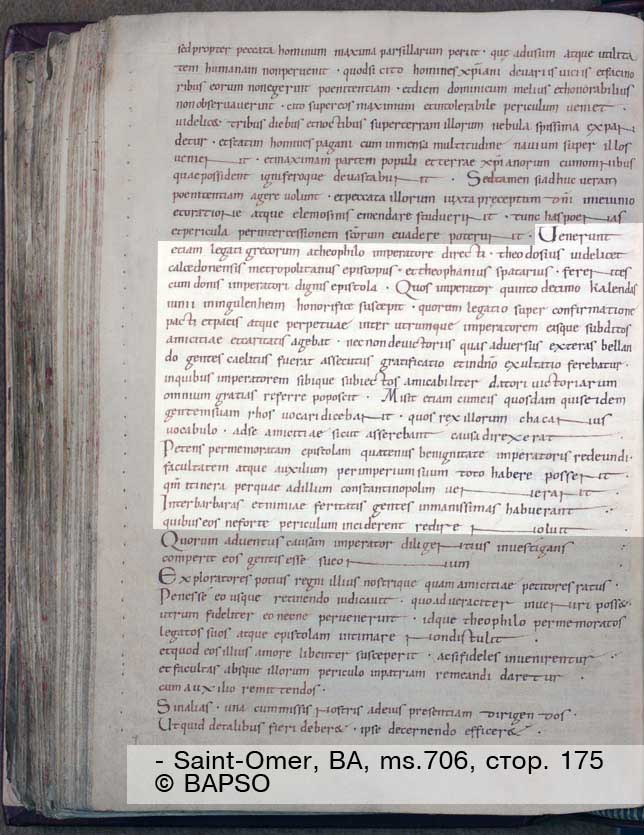 sed propter peccata hominum maxima pars illarum perit · que ad usum atque utilita
tem humanam non pervenit · quodsi cito homines xpiani de variis viciis et facino
ribus eorum non egerint poenitentiam · et diem dominicum melius et honorabilius
non observaverint · cito super eos maximum et intolerabile periculum veniet ·
videlic& tribus diebus et noctibus super terram illorum nebula spissima expan
detur · et statim homines pagani cum inmensa multitudine navium super illos
venient · et maximam partem populi et terrae xpianorum cum omnibus
quae possident igni ferroque devastabunt · Sed tamen si adhuc veram
poenitentiam agere volunt · et peccata illorum iuxta preceptum dni ieiunio
et oratione atque elemosinis emendare studuerint · tunc has poenas
et pericula per intercessionem scorum evadere poterunt · Venerunt
etiam legati grecorum a theophilo imperatore directi · theodosius videlicet
calcedonensis metropolitanus episcopus · et theophanius spatarius · ferentes
cum donis imperatori dignis epistola · Quos imperator quinto decimo kalendas
iunii in ingulenheim honorifice suscepit · quorum legatio super confirmatione
pacti et pacis atque perpetuae inter utrumque imperatorem eique subditos
amicitiae et caritatis agebat · nec non de victoriis quas adversus exteras bellan
do gentes caelitus fuerat assecutus gratificatio et in dno exultatio ferebatur ·
in quibus imperatorem sibique subiectos amicabiliter datori victoriarum
omnium gratias referre poposcit · Misit etiam cum eis quosdam qui se idem
gentem suam rhos vocari dicebant · quos rex illorum chacanus
vocabulo · ad se amicitiae sicut asserebant causa direxerat
Petens per memoratam epistolam quatenus benignitate imperatoris redeundi ·
facultatem atque auxilium per imperium suum toto habere possent ·
qm itinera per quae ad illum constantinopolim venerant ·
Inter barbaras et nimiae feritatis gentes inmanissimas habuerant
quibus eos ne forte periculum inciderent redire noluit
Quorum adventus causam imperator diligentius investigans
comperit eos gentis esse sueonum
Exploratores potius regni illius nostrique quam amicitiae petitores ratus ·
Penes se eo usque retinendo iudicavit · quo ad veraciter inveniri poss&
utrum fideliter eo necne pervenerint · idque theophilo per memoratos
legatos suos atque epistolam intimare non distulit ·
et quod eos illius amore libenter susceperit · ac si fideles invenirentur
et facultas absque illorum periculo in patriam remeandi daretur
cum auxilio remittendos ·
Sin alias · una cum missis nostris ad eius presentiam dirigendos ·
Ut quid de talibus fieri deber& · ipse decernendo efficer& ·
- Saint-Omer, BA, ms.706, стор. 175
© BAPSO